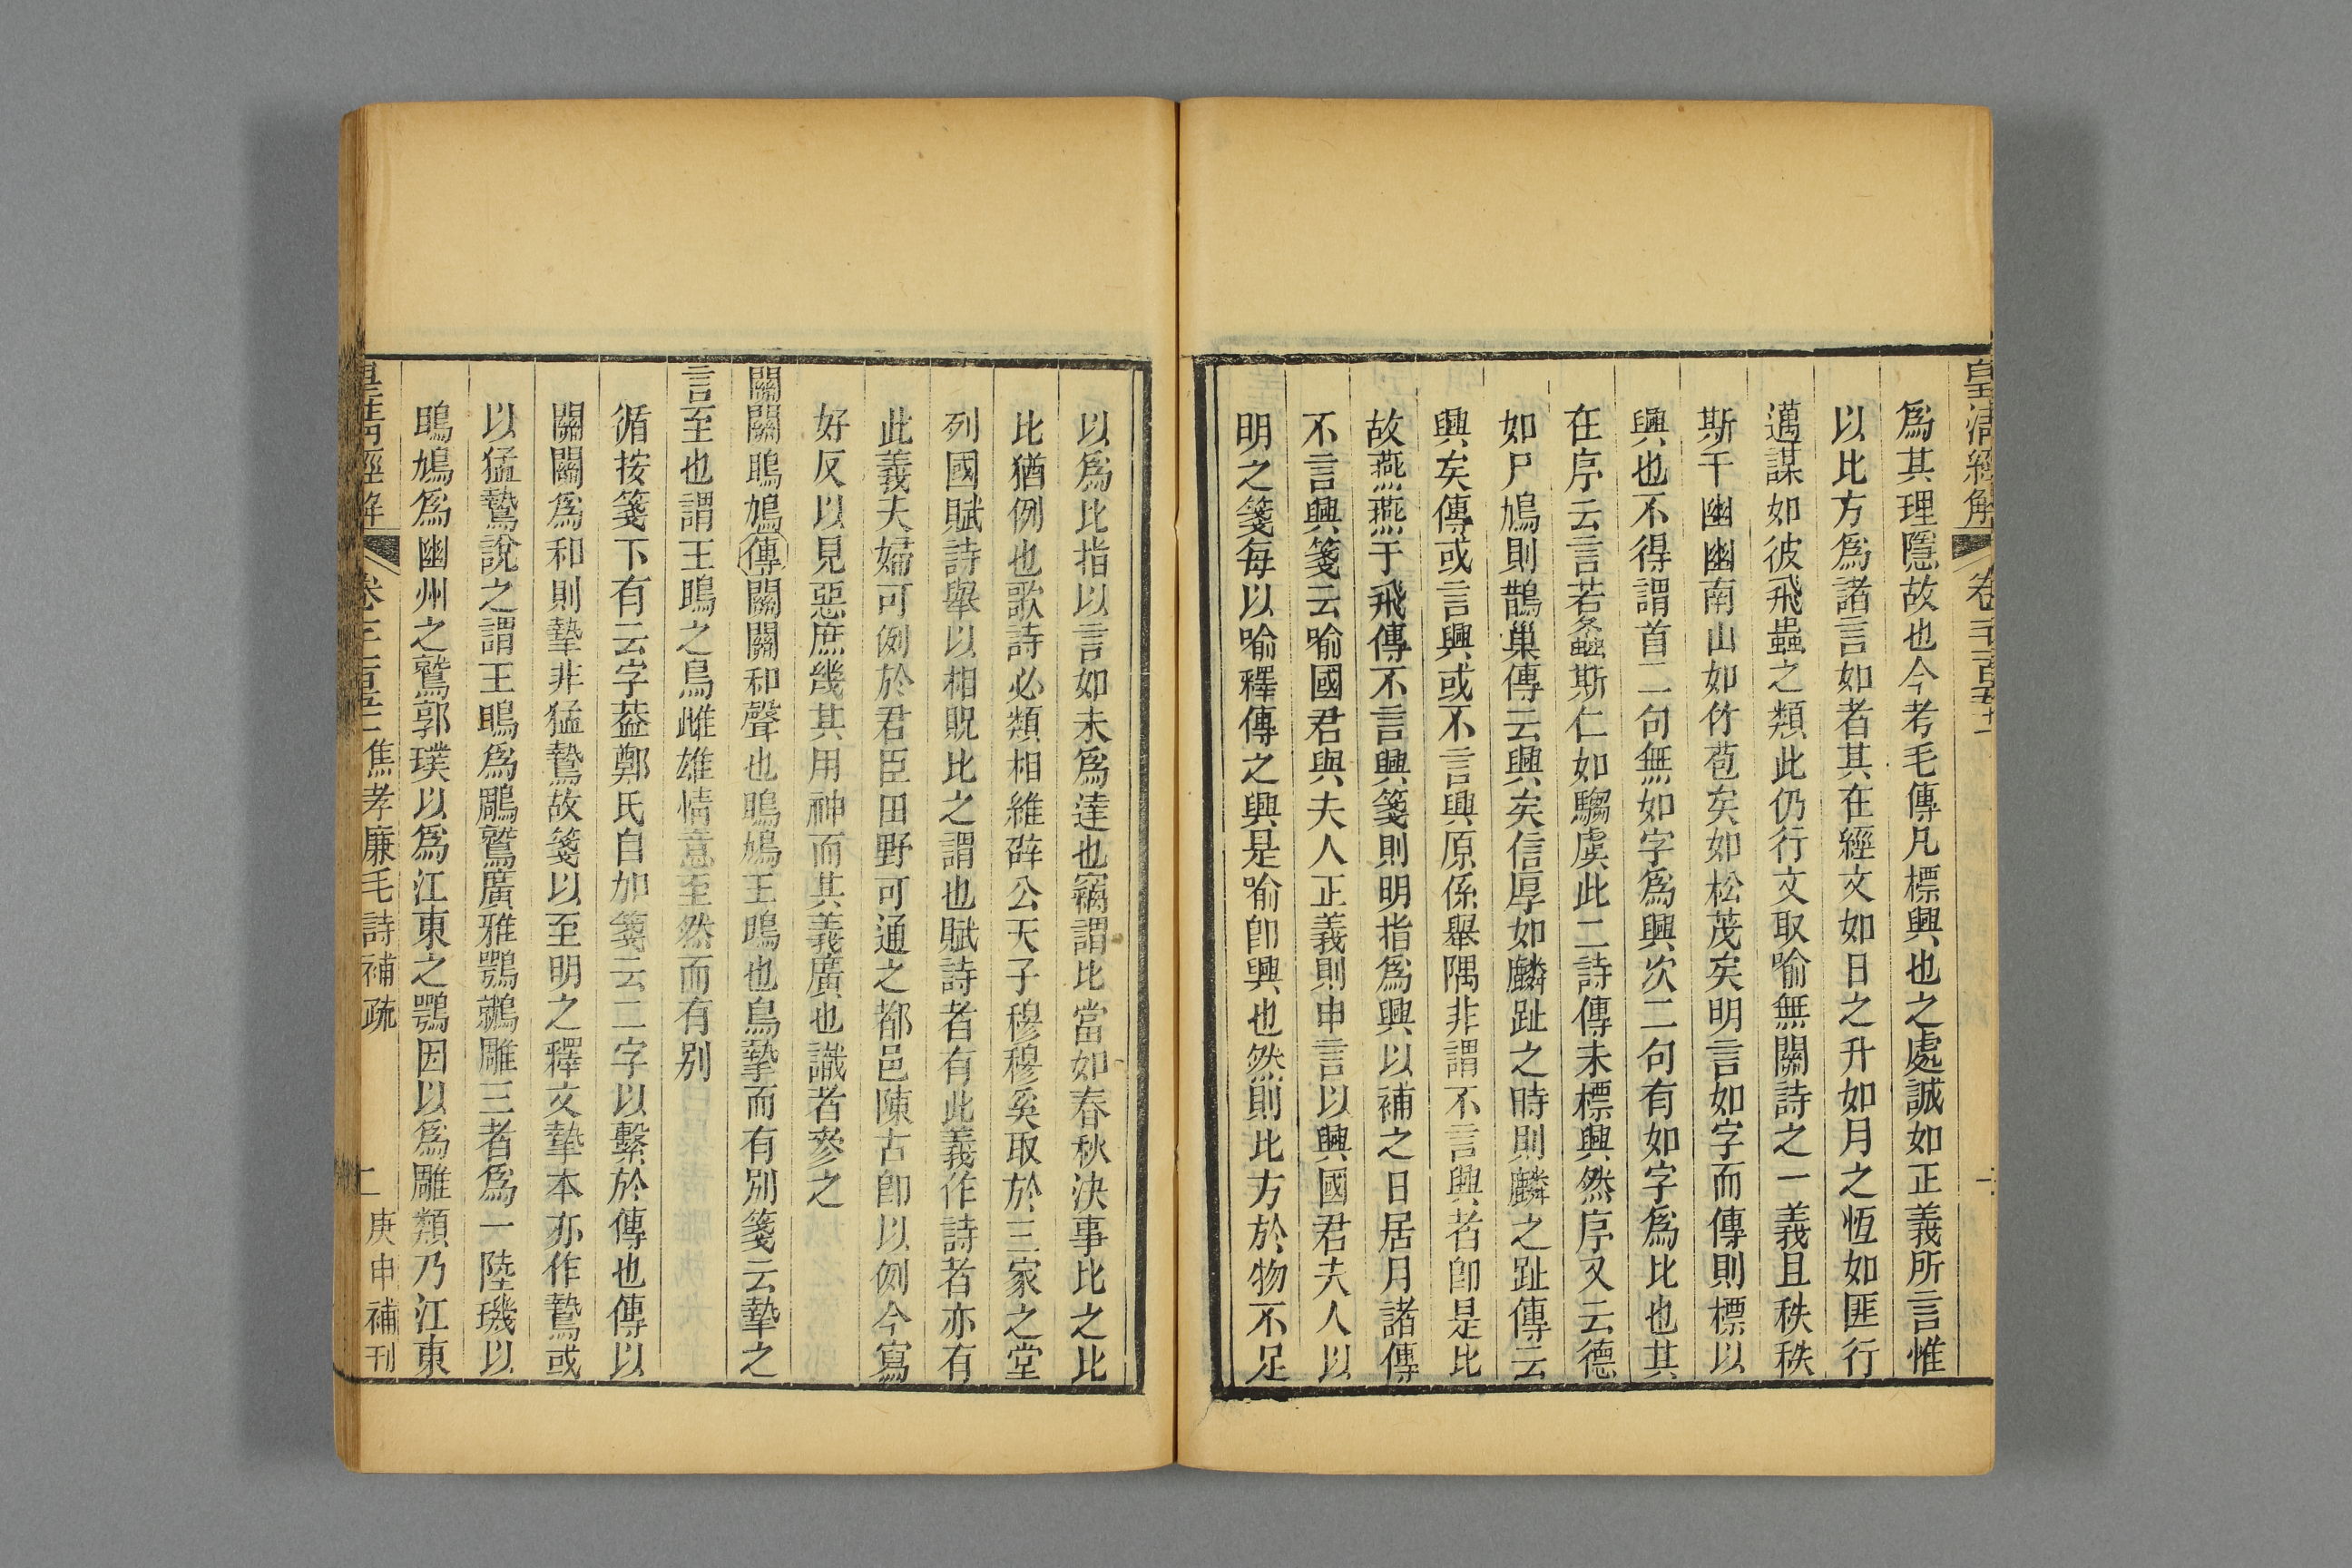 皇清經解 卷千一百五十一
爲其理隱故也今考毛傳凡標興也之處誠如正義所言惟
以比方爲諸言如者其在經文如日之升如月之恆如匪行
邁謀如彼飛蟲之類此仍行文取喻無關詩之一義且秩秩
斯干幽幽南山如竹苞矣如松茂矣明言如字而傳則標以
興也不得謂首二句無如字爲興次二句有如字爲比也其
在序云言若螽斯仁如騶虞此二詩傳未標興然序又云德
如尸鳩則鵲巢傳云興矣信厚如麟趾之時則麟之趾傳云
興矣傳或言興或不言興原係舉隅非謂不言興者卽是比
故燕燕于飛傳不言興箋則明指爲興以補之日居月諸傳
不言興箋云喻國君與夫人正義則申言以興國君夫人以
明之箋每以喻釋傳之興是喻卽興也然則比方於物不足
以爲比指以言如未爲達也竊謂比當如春秋決事比之比
比猶例也歌詩必類相維辟公天子穆穆奚取於三家之堂
列國賦詩舉以相貺比之謂也賦詩者有此義作詩者亦有
此義夫婦可例於君臣田野可通之都邑陳古卽以例今寫
好反以見惡庶幾其用神而其義廣也識者參之
關關鴡鳩傳關關和聲也鴡鳩王鴡也鳥摯而有別箋云摯之
言至也謂王鴡之鳥雌雄情意至然而有别
循按箋下有云字葢鄭氏自加箋云二字以繫於傳也傳以
關關爲和則摯非猛鷙故箋以至明之釋文摯本亦作鷙或
以猛鷙說之謂王鴡爲鵰鷲廣雅鶚鷲雕三者爲一陸璣以
鴡鳩爲幽州之鷲郭璞以爲江東之鶚因以爲雕類乃江東
皇清經解 焦孝廉毛詩補疏 二 庚申補刊